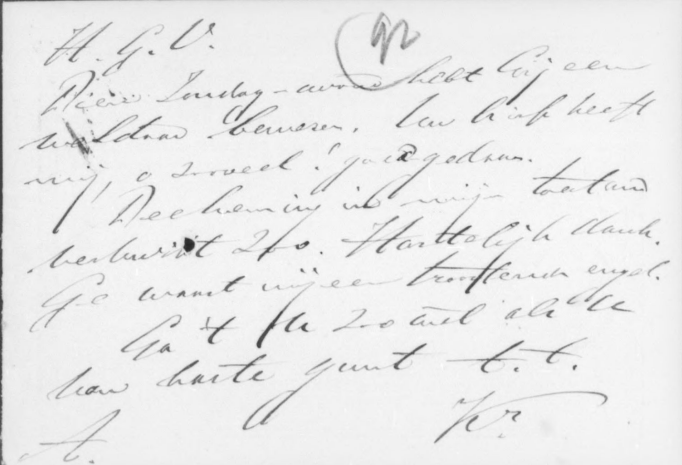 92
H. G. V.
Deze Zondag-avond hebt Gij een
weldaad bewezen. Uw brief heeft
mij, o zooveel! goed gedaan.
Deelneming in mijn toestand
verkwikt zoo. Hartelijk dank.
Ge waart mij een troostende engel.
Ga 't U zoo wel als U
van harte gunt t. t.
Kr
A.